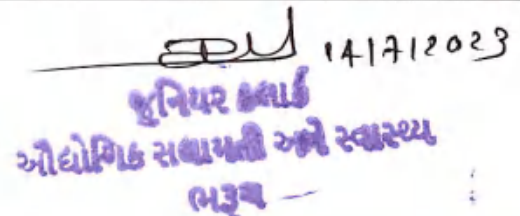 14/7/2023
જુનિયર ક્લાર્ક
ઔદ્યોગિક સલામતી અને સ્વાસ્થ્ય
ભરૂચ